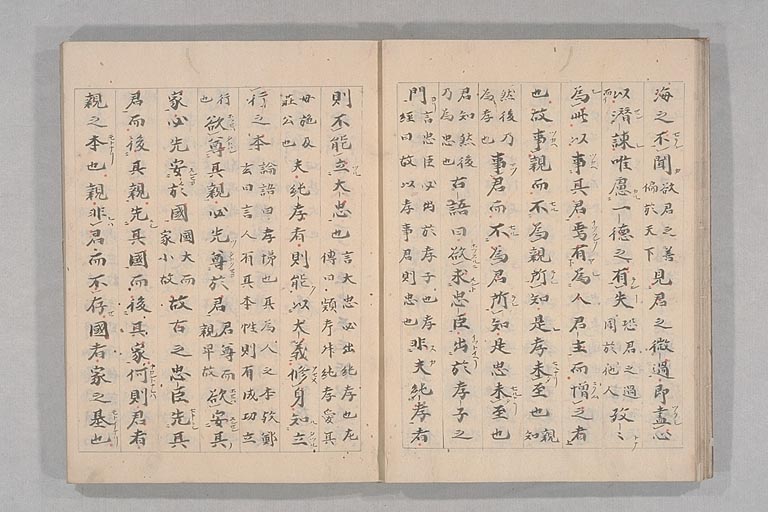 海之不聞欲君之善徧於天下見君之微過即盡心
以潛諫唯慮一德之有失恐君之過聞於他人孜々
為此以事其君焉有為人君主而憎之者
也故事親而不為親所知是孝未至也親知
然後乃為孝也事君而不為君所知是忠未至也
君知然後乃為忠也古語曰欲求忠臣出於孝子之
門言忠臣必出於孝子也孝經曰故以孝事君則忠也非夫純孝者
則不能立大忠也言大忠必出純孝也左傳曰穎考叔純孝愛其
母施及莊公也夫純孝者則能以大義修身知立
行之本論語曰孝悌也其為人之本歟鄭玄曰言人有其本性則有成功立
行也欲尊其親必先尊於君君尊而親卑故欲安其
家必先安於國國大而家小故故古之忠臣先其
君而後其親先其國而後其家何則君者
親之本也親非君而不存國者家之基也